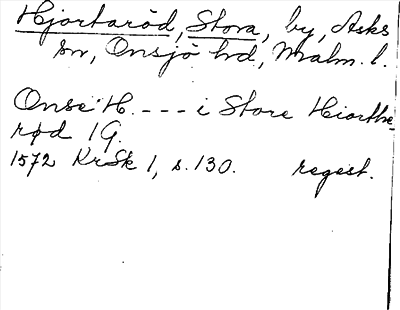 Hjortaröd, Stora, by, Asks
sn, Onsjö hd, Malm. l.
Onse H. --- i Store Hiorthe-
rød 1 G.
1572 KrSk 1, s. 130. regest.